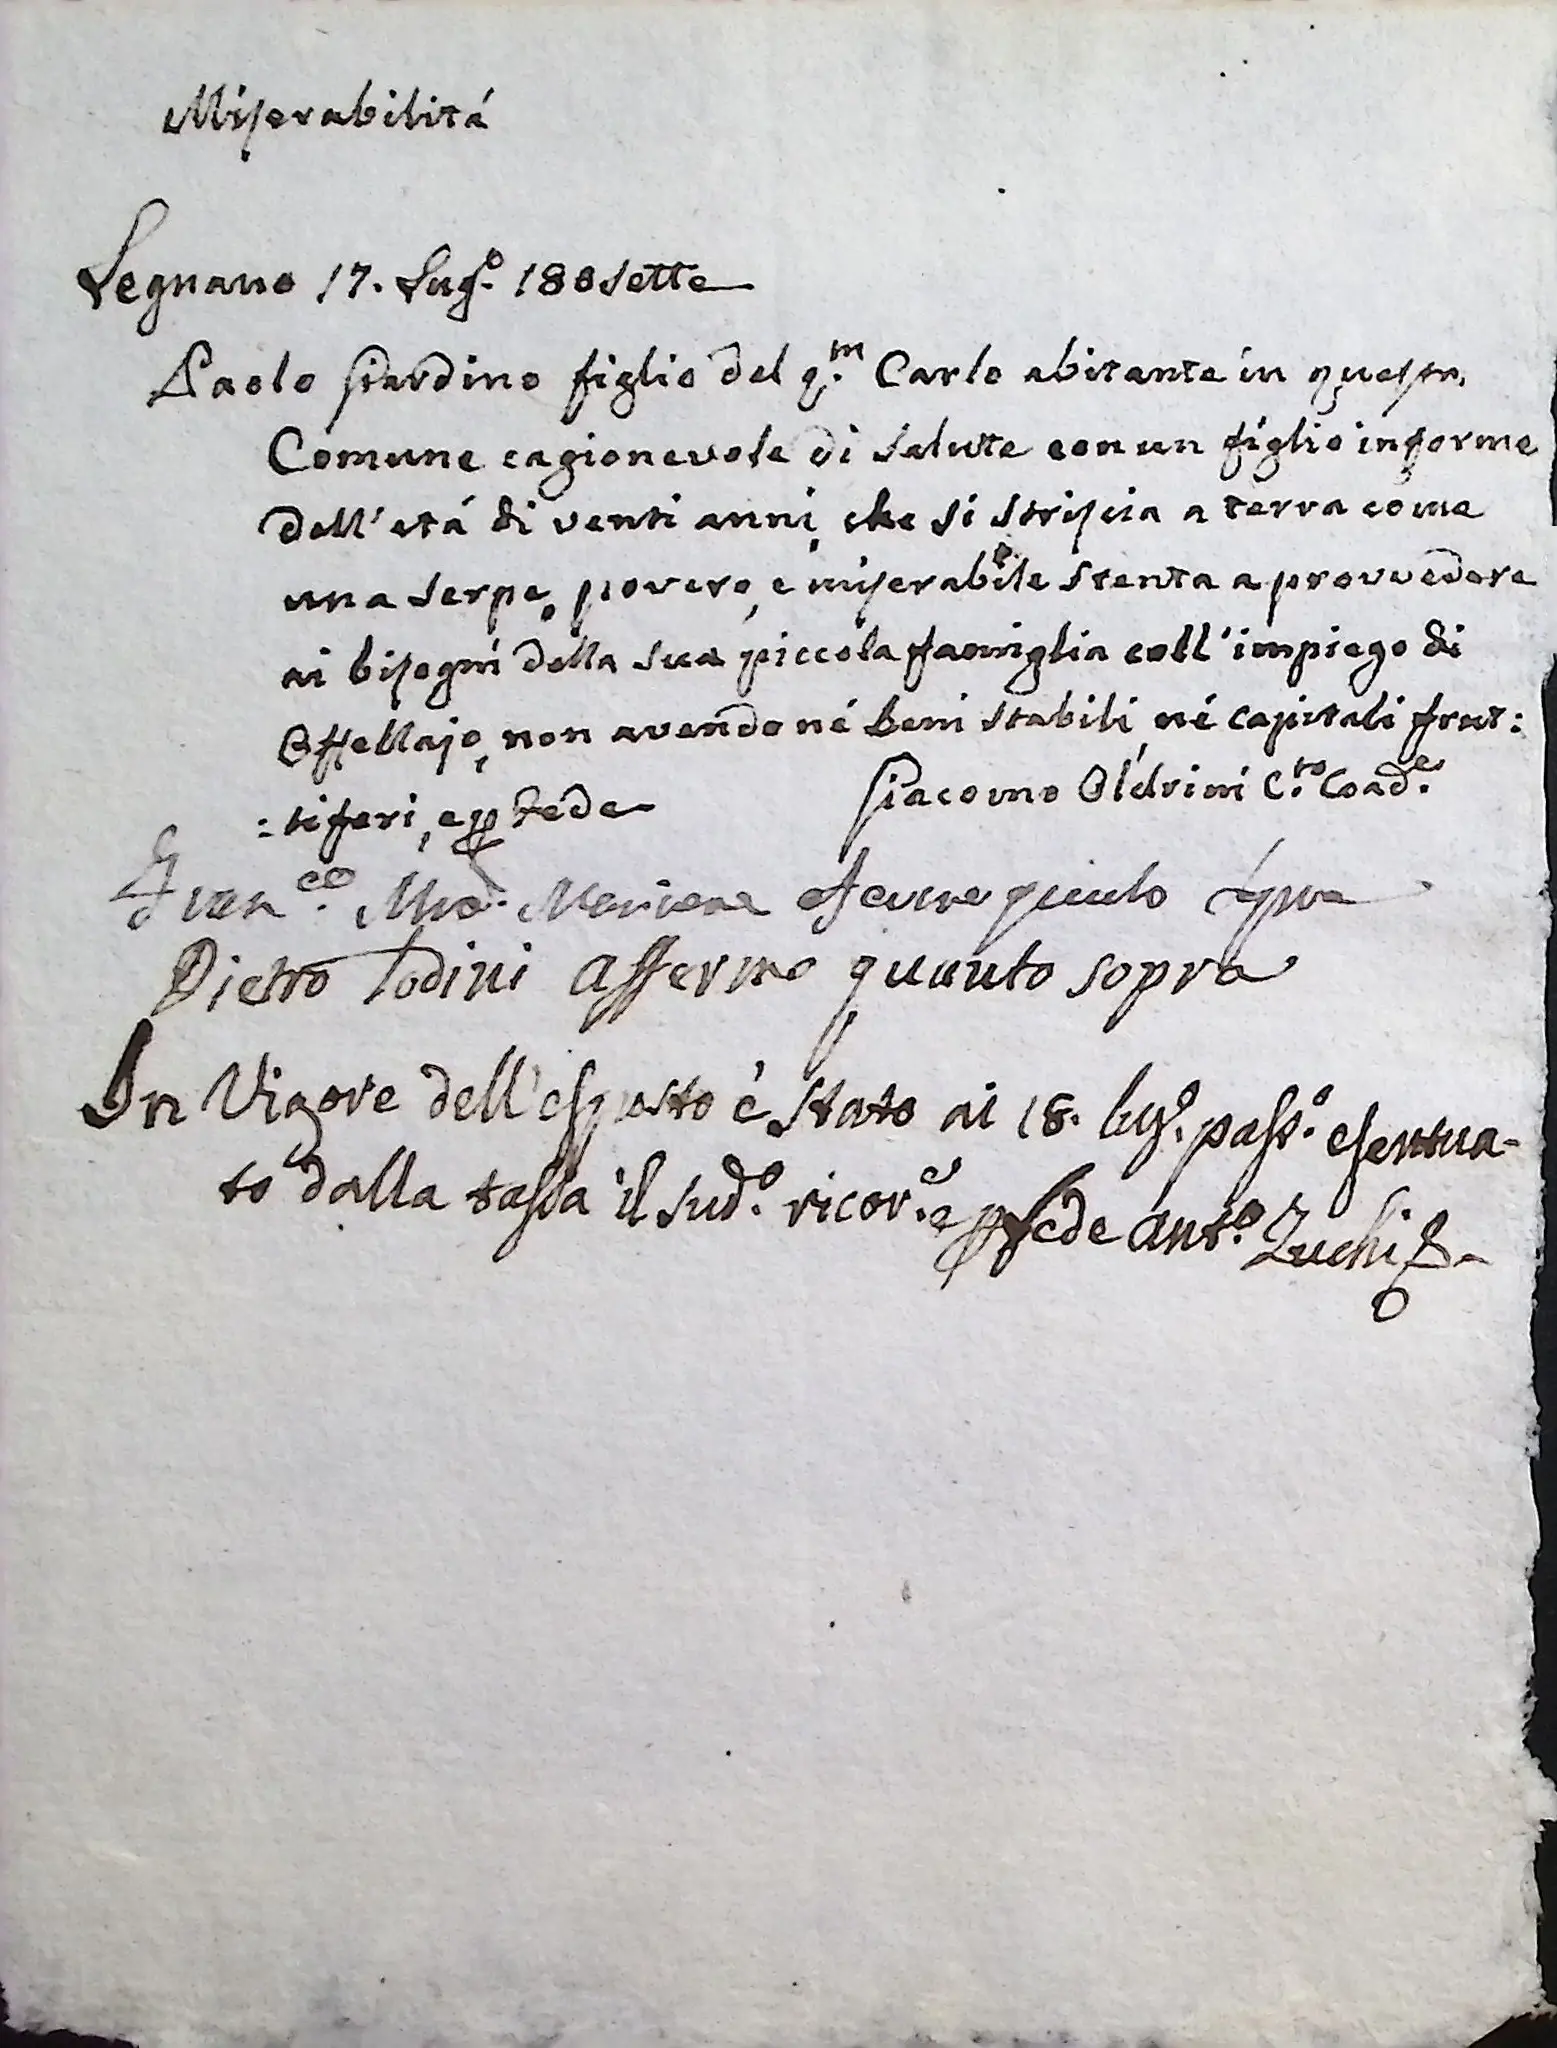 Miserabilitá
Legnano 17. Lug.o 180sette
Paolo Giardino figlio del q.m Carlo abitante in questa
Comune cagionevole di salute con un figlio informe
dell'etá di venti anni, che si striscia a terra come
una serpe, povero, e miserabile stenta a provvedere
ai bisogni della sua piccola famiglia coll'impiego di
Offellajo, non avendo né beni stabili né capitali frut:
:tiferi, e p fede Giacomo Oldrini C.to Coad.e
Fran.co M.a afermo quanto sopra
Pietro Todini affermo quanto sopra
In Vigore dell'esposto è stato ai 18. lug.o pass.o esentua-
to dalla tassa il sud.o ricor.e e p fede Ant.o Zuchi